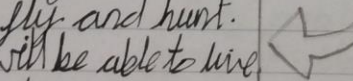 fly and hunt.
will be able to live